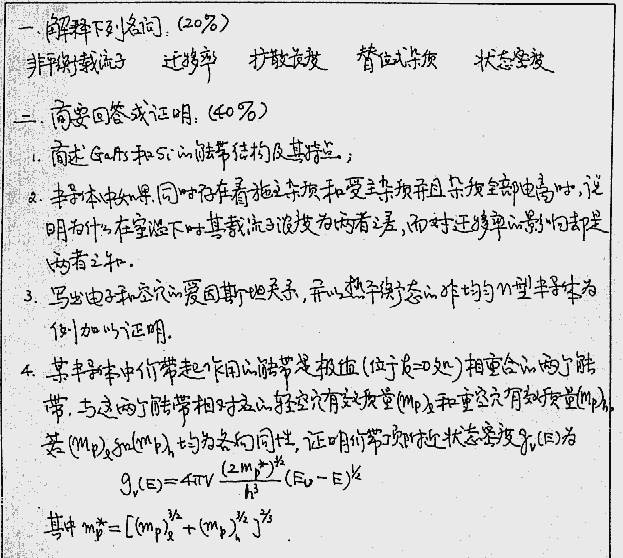 一. 解释下列名词. (20%)
非平衡载流子 迁移率 扩散长度 替位式杂质 状态密度
二. 简要回答或证明: (40%)
1. 简述GaAs和Si的能带结构及其特点;
2. 半导体中如果同时存在着施主杂质和受主杂质并且杂质全部电离时,说
明为什么在室温下时其载流子浓度为两者之差,而对迁移率的影响却是
两者之和.
3. 写出电子和空穴的爱因斯坦关系,并以热平衡态的非均匀n型半导体为
例加以证明.
4. 某半导体中价带起作用的能带是极值(位于k=0处)相重合的两个能
带,与这两个能带相对应的轻空穴有效质量(mp)l和重空穴有效质量(mp)h.
若(mp)l和(mp)h均为各向同性,证明价带顶附近状态密度gv(E)为
gv(E)=4πV (2mp*)^3/2 / h^3 (Ev-E)^1/2
其中 mp*=[(mp)l^3/2+(mp)h^3/2]^2/3